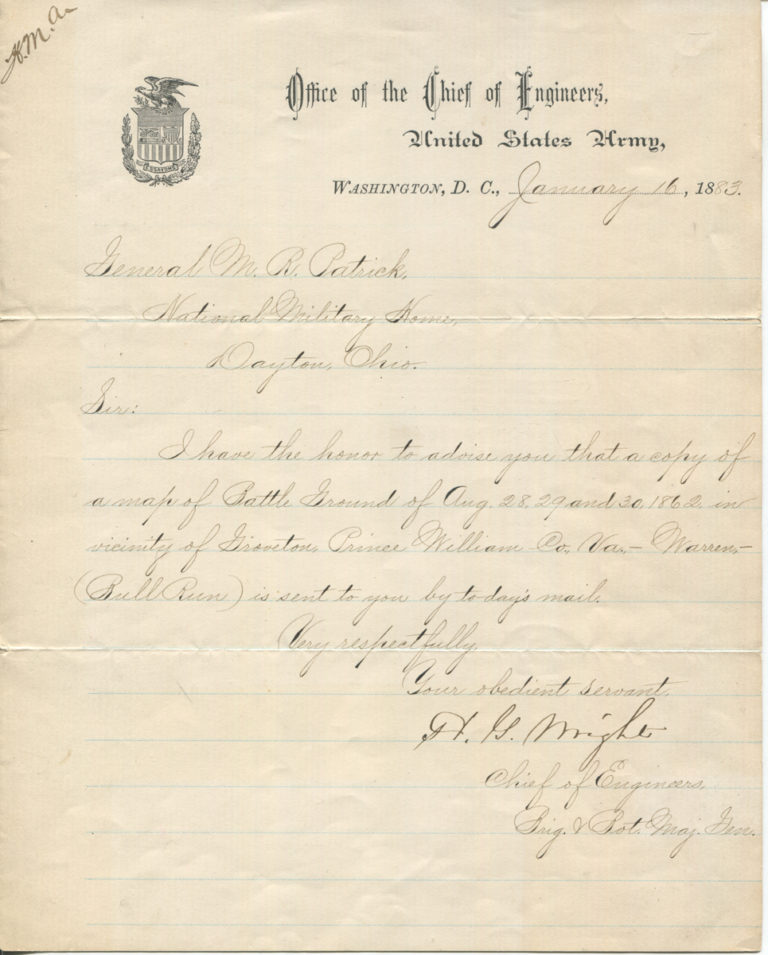 H.M.A.
Office of the Chief of Engineers,
United States Army,
Washington, D. C., January 16, 1883.
General M. R. Patrick,
National Military Home,
Dayton, Ohio.
Sir:
I have the honor to advise you that a copy of
a map of Battle Ground of Aug. 28, 29 and 30, 1862 in
vicinity of Groveton, Prince William Co. Va. – Warren, –
(Bull Run) is sent to you by to day's mail.
Very respectfully,
Your obedient servant,
H. G. Wright
Chief of Engineers,
Brig. & Bvt. Maj. Gen.